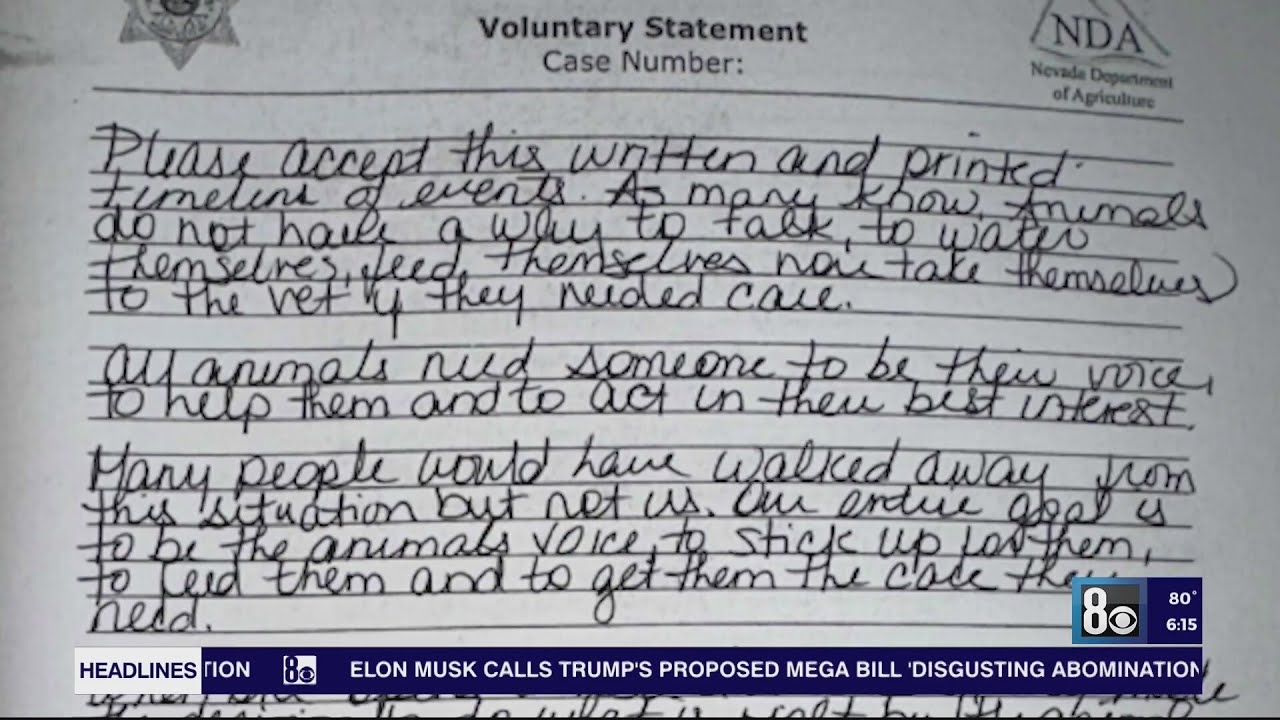 Voluntary Statement
Case Number:
NDA
Nevada Department
of Agriculture
Please accept this written and printed
timeline of events. As many know, Animals
do not have a way to talk, to water
themselves, feed themselves nor take themselves
to the vet if they needed care.
All animals need someone to be their voice,
to help them and to act in their best interest.
Many people would have walked away from
this situation but not us. Our entire goal is
to be the animals voice, to stick up for them,
to feed them and to get them the care they
need.
8
80°
6:15
HEADLINES
TION
8
ELON MUSK CALLS TRUMP'S PROPOSED MEGA BILL 'DISGUSTING ABOMINATION